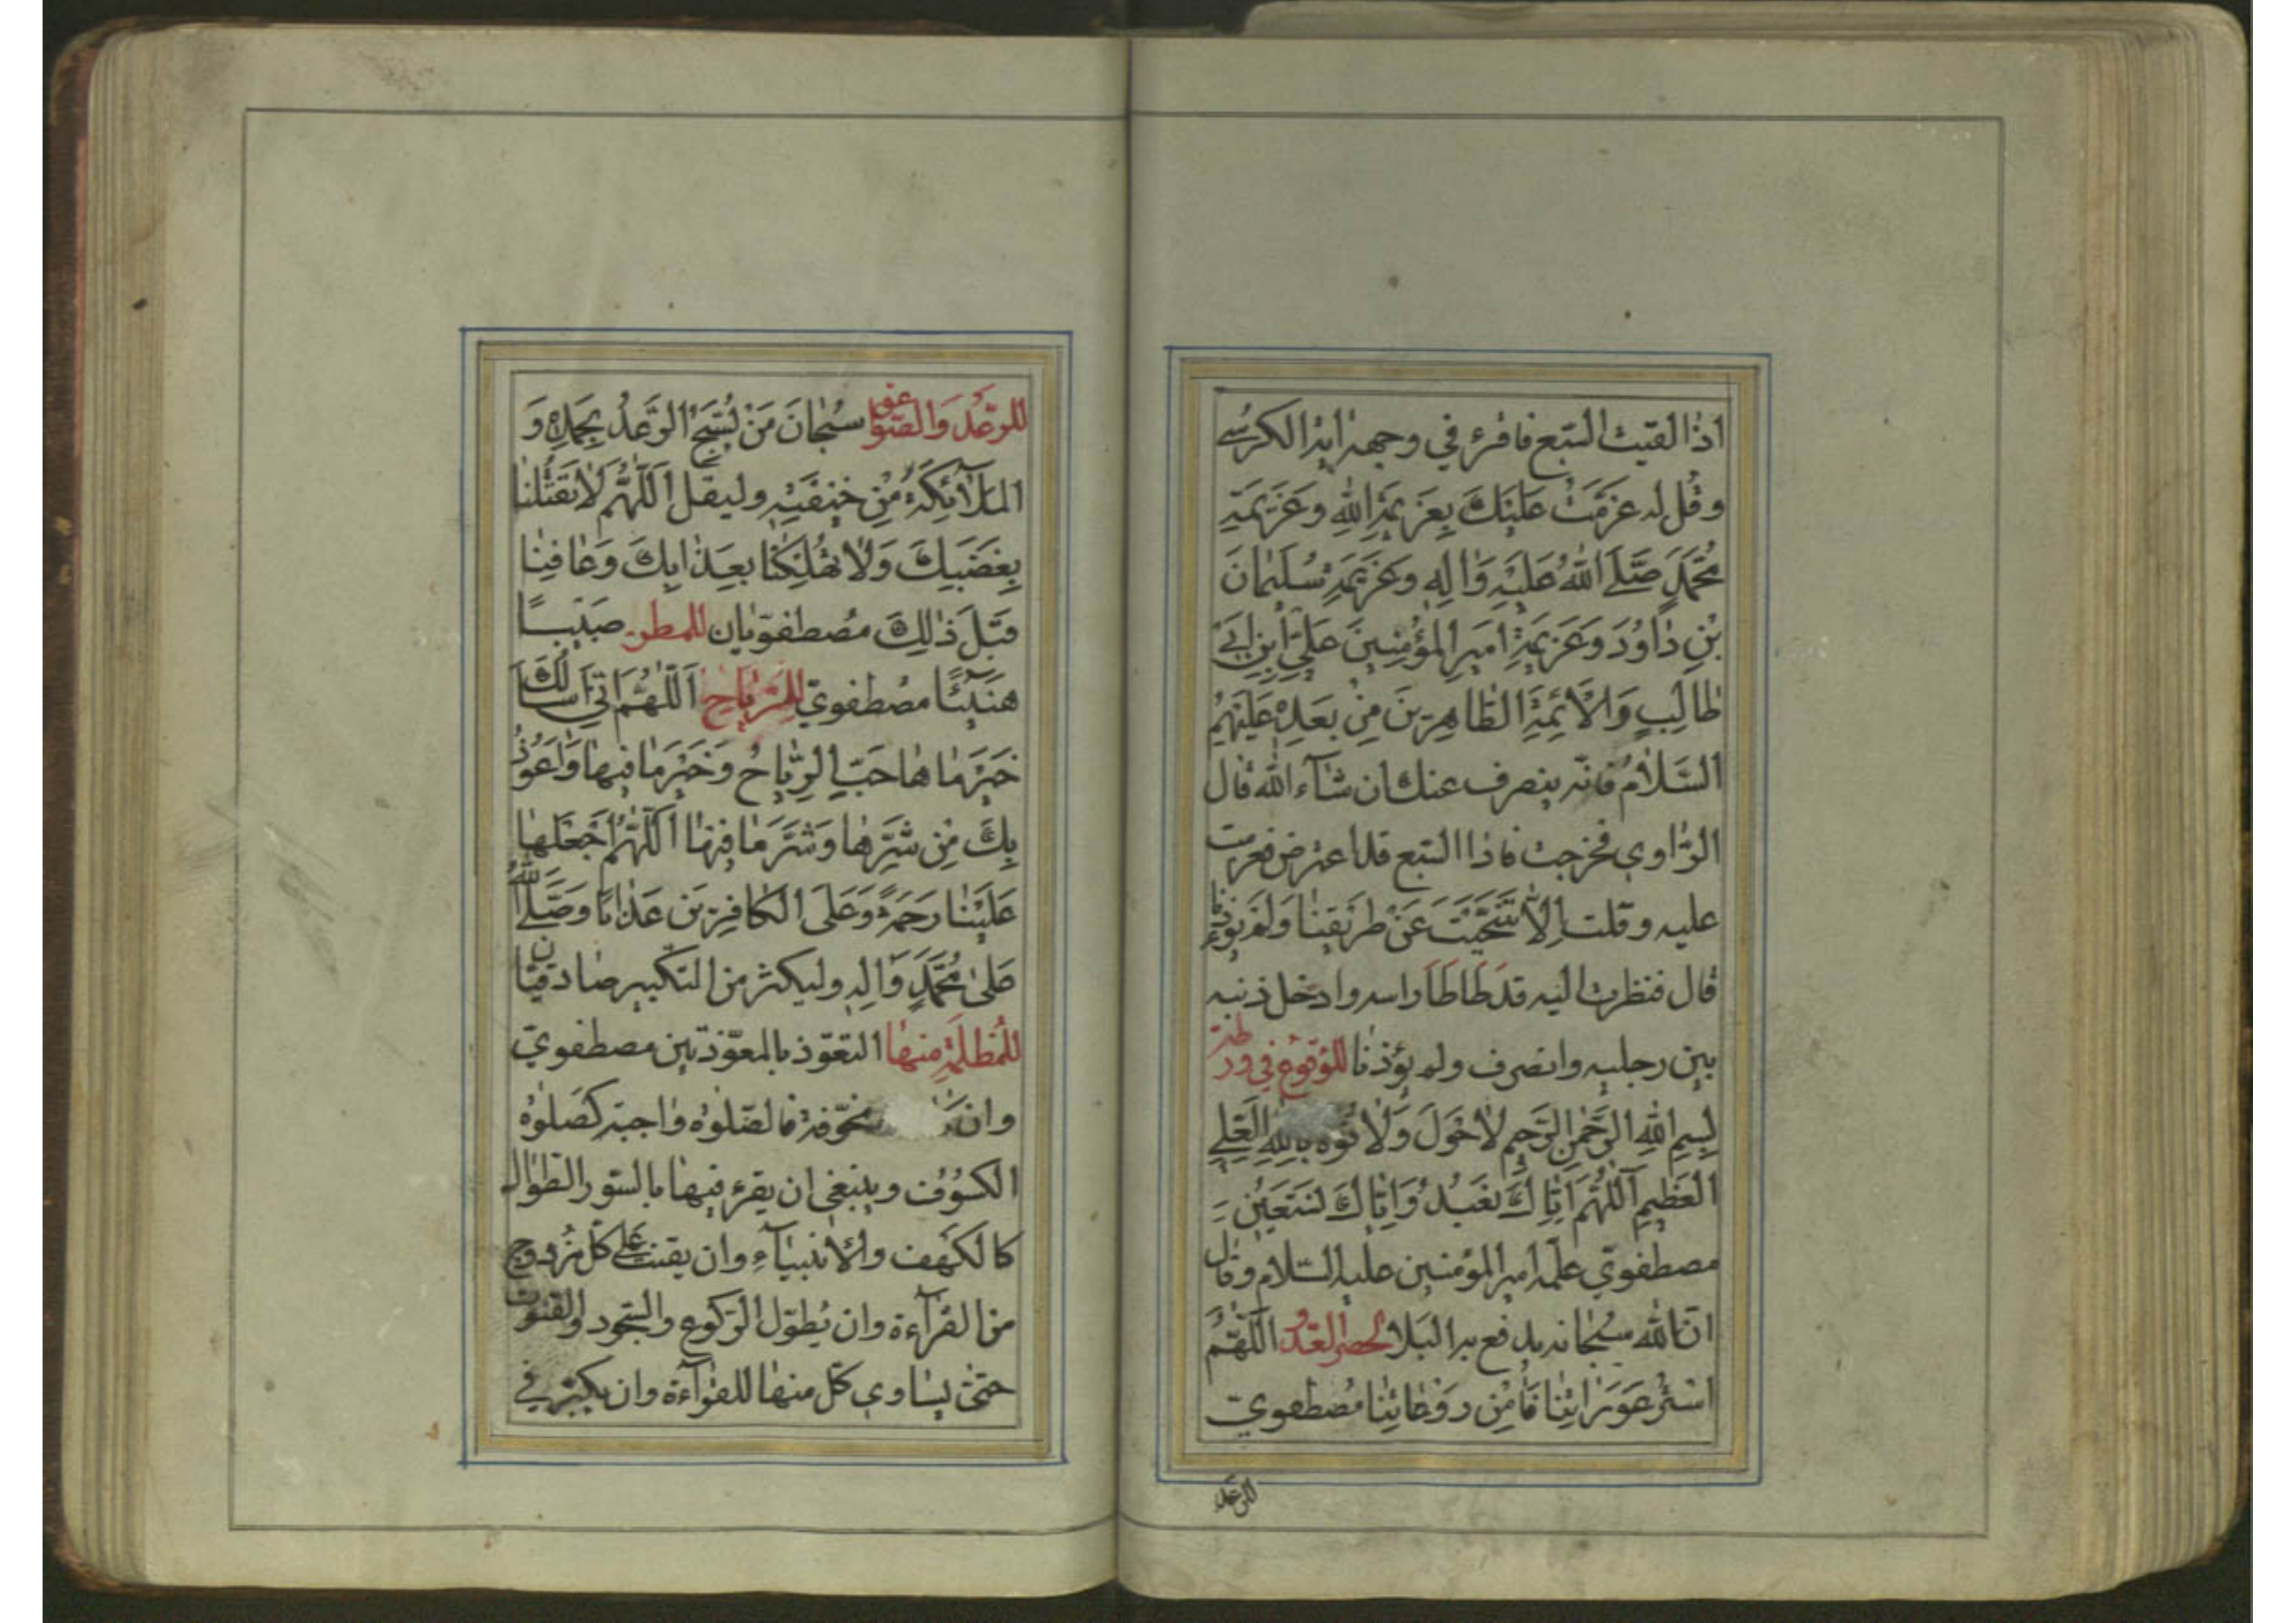 اذا لقيت السبع فاقرء في وجهه اية الكرسي
وقُل له عَزَمْتُ عَلَيْكَ بِعَزيمَةِ اللهِ وعَزيمَةِ
مُحَمَّدٍ صَلَّى اللهُ عَلَيْهِ وَالِهِ وعَزيمَةِ سُلَيْمانَ
بْنِ داوُدَ وَعَزيمَةِ اَميرِ المُؤْمِنينَ عَلِيِّ ابْنِ اَبي
طالِبٍ وَالْاَئِمَّةِ الطّاهِرينَ مِنْ بَعْدِهِ عَلَيْهِمُ
السَّلامُ فانه ينصرف عنك ان شآء الله قال
الرّاوي فخرجت فاذا السبع قد اعترض فعزمت
عليه وقلت اِلّا تَنَحَّيْتَ عَنْ طَريقِنا وَلَمْ تُؤْذِنا
قال فنظرت اليه قد طَاطَا راسه وادخل ذنبه
بين رجليه وانصرف ولم يؤذنا للوقوع في ورطة
بِسْمِ اللهِ الرَّحْمنِ الرَّحيمِ لا حَوْلَ وَلا قُوَّةَ بِاللهِ العَلِيِّ
العَظيمِ اَللّهُمَّ اِيّاكَ نَعْبُدُ وَاِيّاكَ نَسْتَعينُ
مصطفويّ علّمه امير المؤمنين عليه السّلام وقال
انّ الله سبحانه يدفع به البلا لحصر العدو اَللّهُمَّ
اسْتُرْ عَوْراتِنا وَامِنْ رَوْعاتِنا مُصطفويّ
الرعد
للرّعد والصّواعق سُبْحانَ مَنْ يُسَبِّحُ الرَّعْدُ بِحَمْدِهِ وَ
المَلآئِكَةُ مِنْ خيفَتِهِ وليقل اَللّهُمَّ لا تَقْتُلْنا
بِغَضَبِكَ وَلا تُهْلِكْنا بِعَذابِكَ وَعافِنا
قَبْلَ ذلِكَ مُصطفويّان للمطر صَيِّباً
هَنيئاً مصطفويّ للرّياح اَللّهُمَّ اِنّي اَسْاَلُكَ
خَيْرَ ما هاجَتْ الرِّياحُ وَخَيْرَ ما فيها وَاَعُوذُ
بِكَ مِنْ شَرِّها وَشَرِّ ما فيها اَللّهُمَّ اجْعَلْها
عَلَيْنا رَحْمَةً وَعَلَى الكافِرينَ عَذاباً وَصَلَّى اللهُ
عَلى مُحَمَّدٍ وَالِهِ وليكثر من التكبير صادقيّان
للمُظلمة منها التعوّذ بالمعوّذتين مصطفويّ
وان مخوّفة فالصّلوة واجبة كصَلوة
الكسُوف وينبغي ان يقرء فيها بالسّور الطّوال
كالكهف والانبيآء وان يقنت على كلّ مزدوج
من القرآءة وان يُطوّل الرّكوع والسّجود والقنوت
حتّى يساوي كلّ منها للقرآءة وان يكبّر في